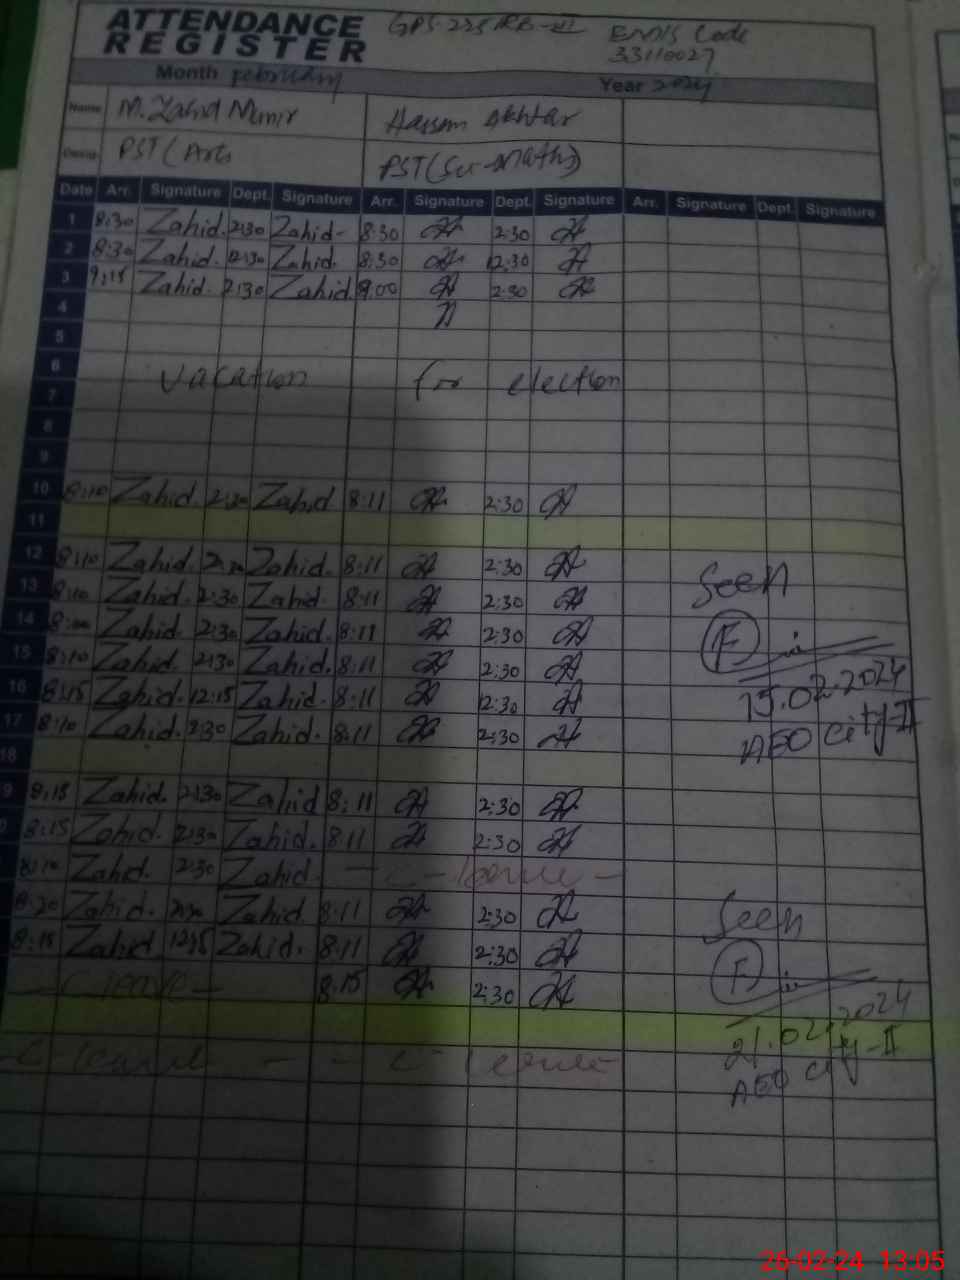 ATTENDANCE REGISTER
GPS-225 RB-III
EMIS Code
33110027
Month February Year 2024
Name M. Zahid Munir Hassan Akhtar
Desig. PST (Arts PST (Sci-Math)
Date Arr. Signature Dept. Signature Arr. Signature Dept. Signature Arr. Signature Dept. Signature
1 8:30 Zahid. 2:30 Zahid- 8:30 2:30
2 8:30 Zahid. 12:30 Zahid. 8:30 12:30
3 9:15 Zahid. 2:30 Zahid 9:00 2:30
4
5
6
vacation for election
7
8
9
10 8:10 Zahid. 2:30 Zahid 8:11 2:30
11
12 8:10 Zahid. 2:30 Zahid. 8:11 2:30
13 8:10 Zahid. 2:30 Zahid. 8:11 2:30
14 8:00 Zahid. 2:30 Zahid. 8:11 2:30
15 8:10 Zahid. 2:30 Zahid. 8:11 2:30
16 8:15 Zahid. 12:15 Zahid. 8:11 12:30
17 8:10 Zahid. 2:30 Zahid. 8:11 2:30
Seen
F
15.02.2024
AEO City-II
18
9 8:15 Zahid. 2:30 Zahid 8:11 2:30
0 8:15 Zahid. 2:30 Zahid. 8:11 2:30
8:10 Zahid. 2:30 Zahid. - C-leave -
8:20 Zahid. 2:30 Zahid. 8:11 2:30
8:15 Zahid 12:15 Zahid. 8:11 2:30
- C leave - 8:15 2:30
Seen
F
21.02.2024
AEO City-II
- C-leave - - C-leave
26-02-24 13:05